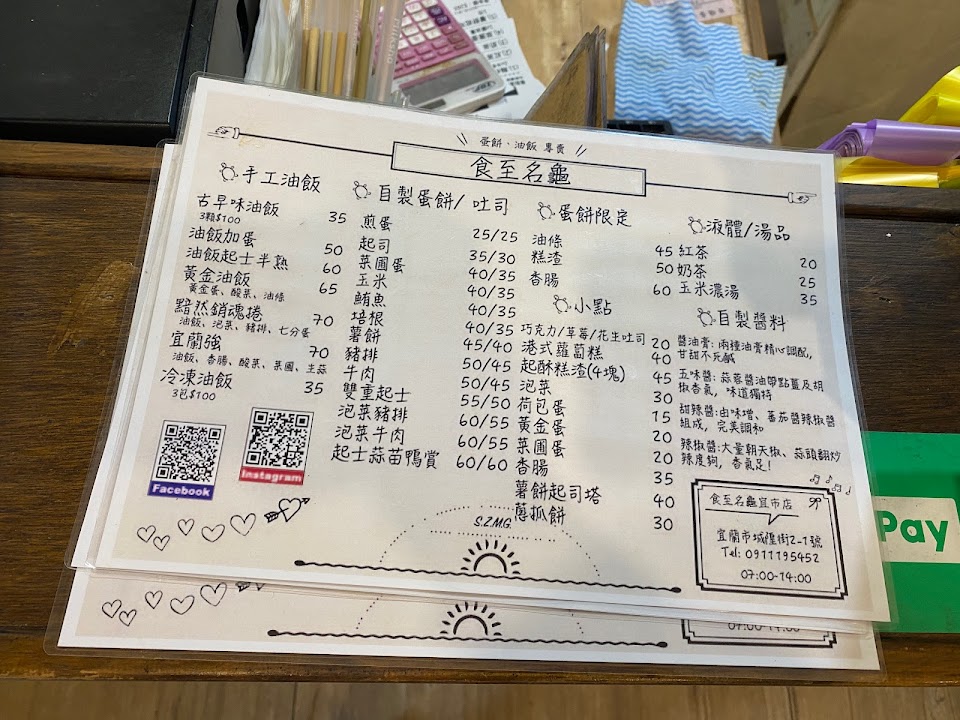 蛋餅、油飯 專賣
食至名龜
手工油飯
古早味油飯 35
3顆$100
油飯加蛋 50
油飯起士半熟 60
黃金油飯 65
黃金蛋、酸菜、油條
黯然銷魂捲 70
油飯、泡菜、豬排、七分蛋
宜蘭強 70
油飯、香腸、酸菜、菜圃、生蒜
冷凍油飯 35
3包$100
Facebook
Instagram
自製蛋餅/吐司
煎蛋 25/25
起司 35/30
菜圃蛋 40/35
玉米 40/35
鮪魚 40/35
培根 40/35
薯餅 45/40
豬排 50/45
牛肉 50/45
雙重起士 55/50
泡菜豬排 60/55
泡菜牛肉 60/55
起士蒜苗鴨賞 60/60
蛋餅限定
油條 45
糕渣 50
香腸 60
小點
巧克力/草莓/花生吐司 20
港式蘿蔔糕 40
起酥糕渣(4塊) 45
泡菜 30
荷包蛋 15
黃金蛋 20
菜圃蛋 20
香腸 35
薯餅起司塔 40
蔥抓餅 30
液體/湯品
紅茶 20
奶茶 25
玉米濃湯 35
自製醬料
醬油膏：兩種油膏精心調配，
甘甜不死鹹
五味醬：蒜蓉醬油帶點薑及胡
椒香氣，味道獨特
甜辣醬：由味噌、蕃茄醬辣椒醬
組成，完美調和
辣椒醬：大量朝天椒、蒜頭翻炒
辣度夠，香氣足！
S.Z.M.G.
食至名龜宜市店
宜蘭市城隍街2-1號
Tel: 0911195452
07:00-14:00
07:00-14:00
Pay